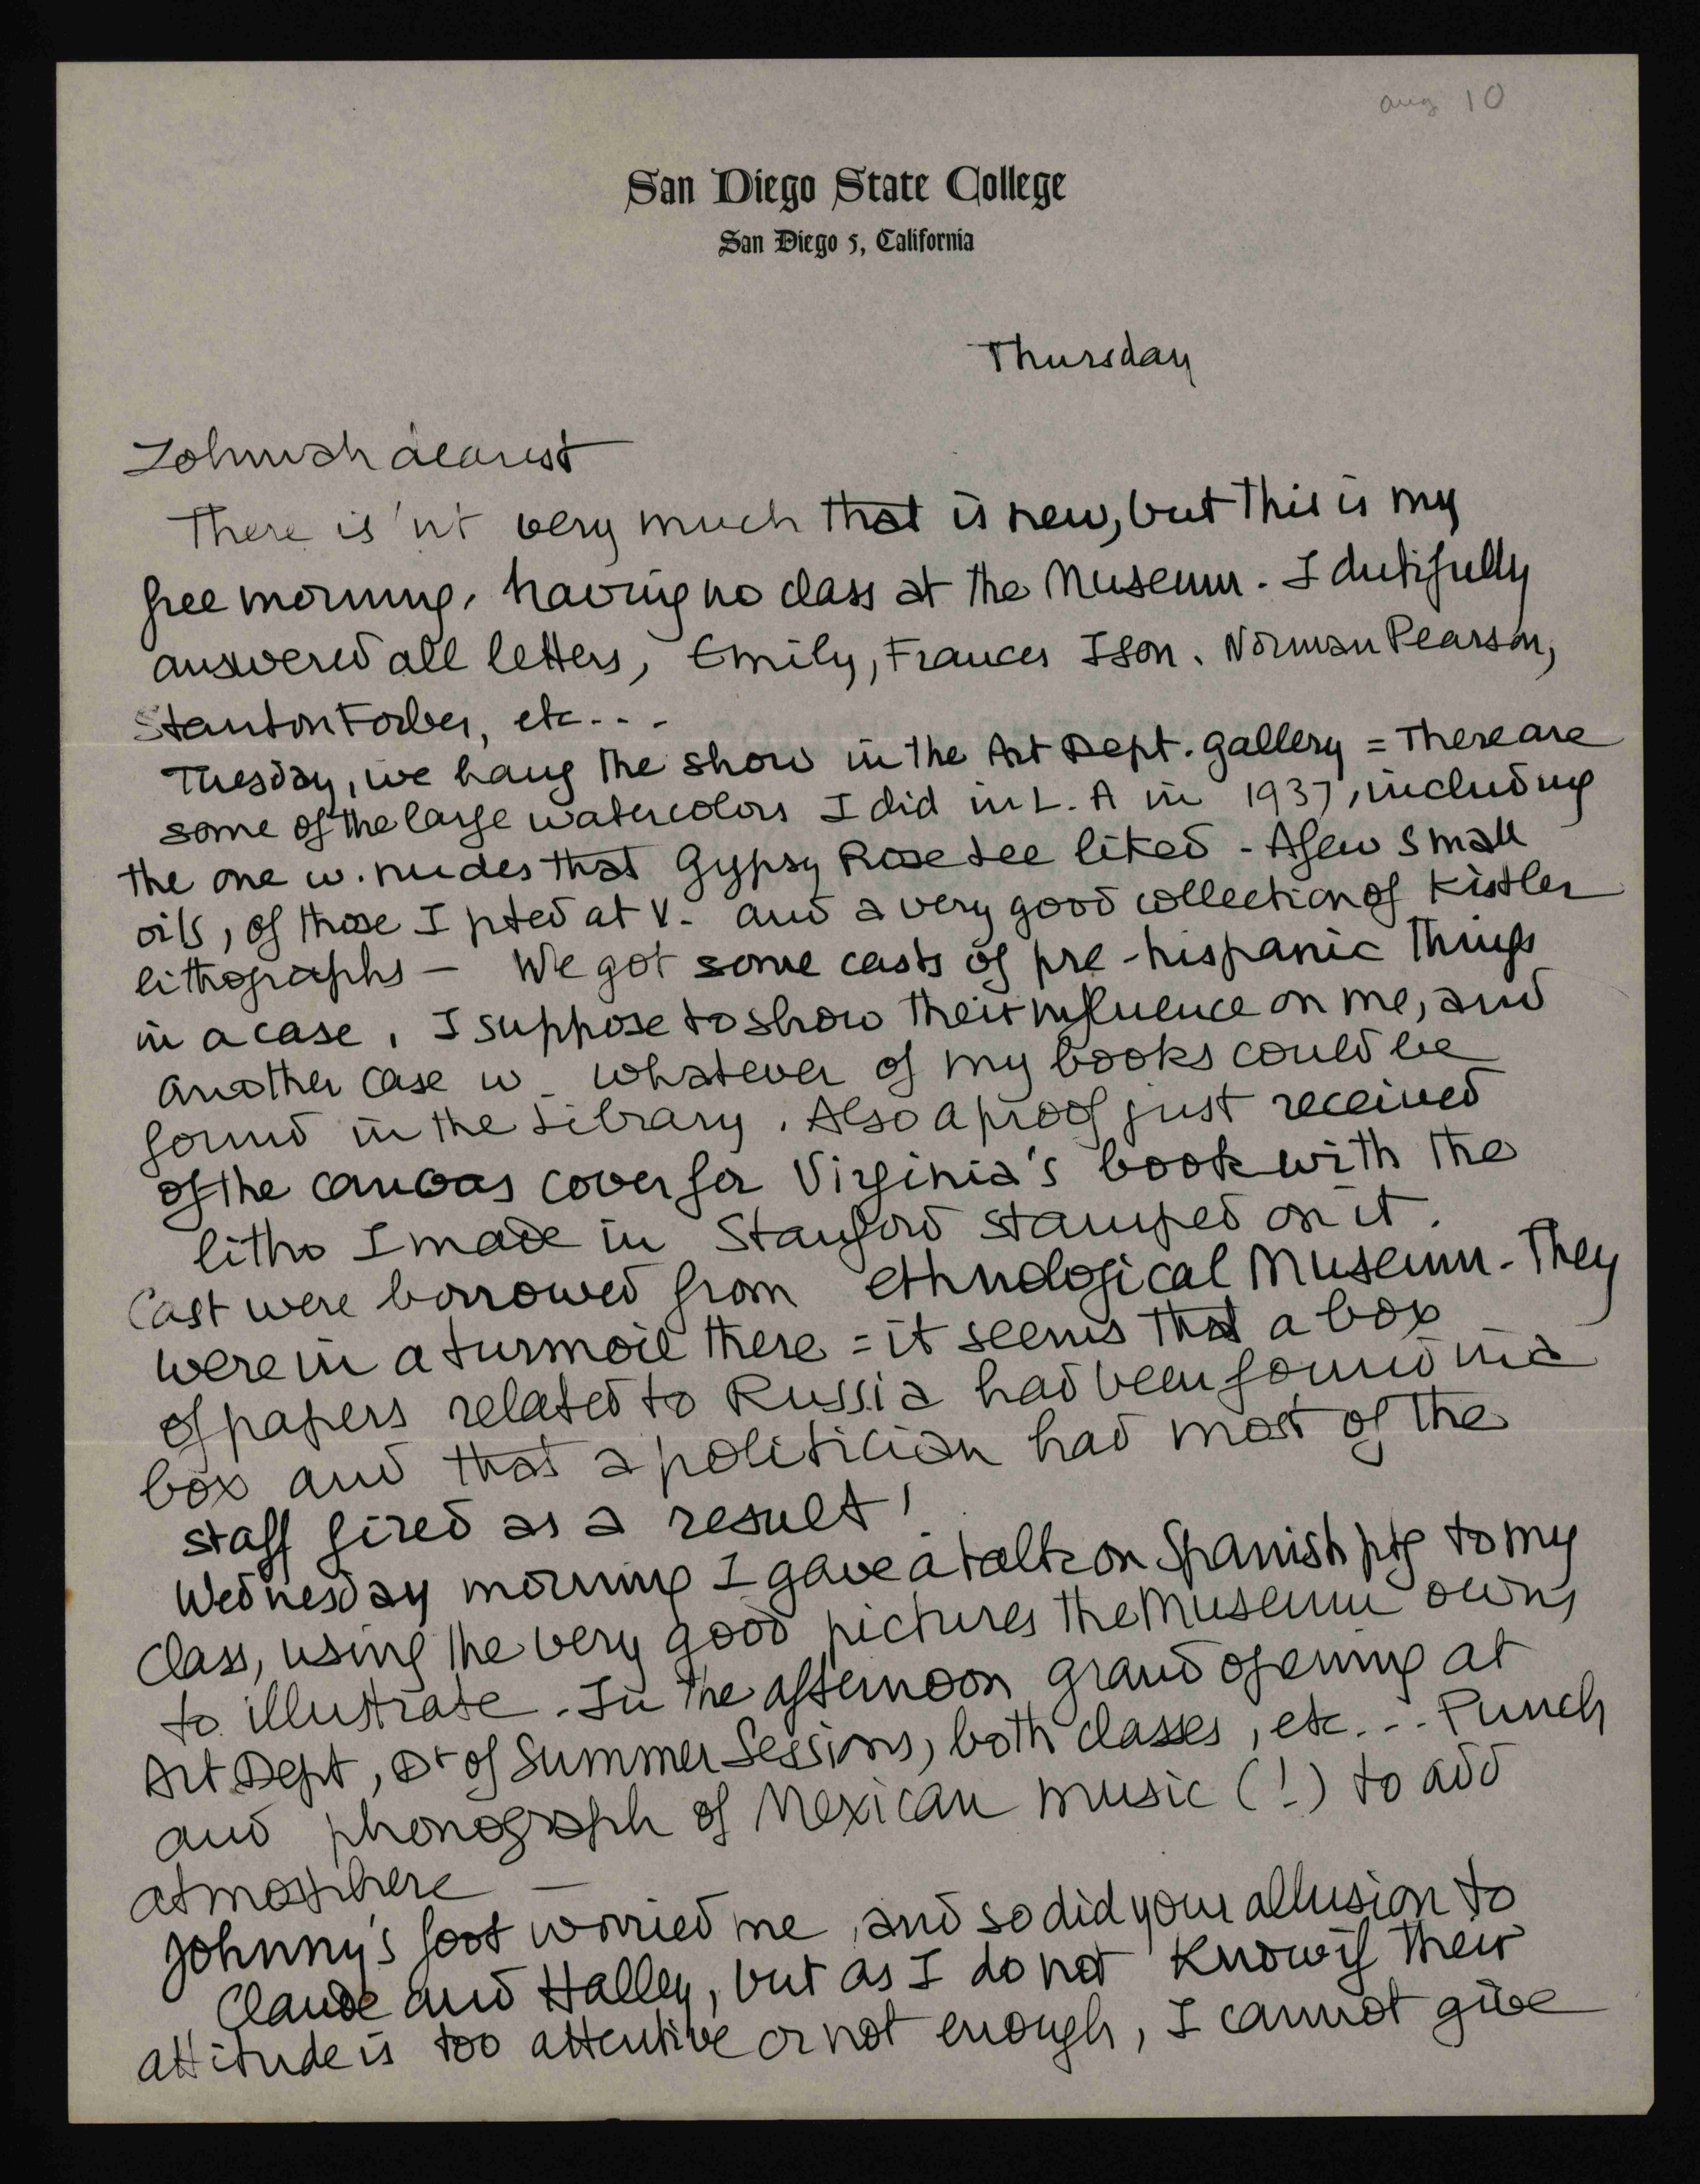 aug 10
San Diego State College
San Diego 5, California
Thursday
Zohmah dearest
There is'nt very much that is new, but this is my
free morning, having no class at the Museum. I dutifully
answered all letters, Emily, Frances Ison. Norman Pearson,
Stanton Forbes, etc...
Tuesday, we hang the show in the Art Dept. gallery = There are
some of the large watercolors I did in L. A in 1937, including
the one w. nudes that Gypsy Rose Lee liked - A few small
oils, of those I pted at V. and a very good collection of Kistler
lithographs — We got some casts of pre-hispanic things
in a case, I suppose to show their influence on me, and
another case w. whatever of my books could be
found in the Library. Also a proof just received
of the canvas cover for Virginia's book with the
litho I made in Stanford stamped on it.
Cast were borrowed from ethnological Museum. They
were in a turmoil there = it seems that a box
of papers related to Russia had been found in a
box and that a politician had most of the
staff fired as a result!
Wednesday morning I gave a talk on Spanish ptg to my
class, using the very good pictures the Museum owns
to illustrate. In the afternoon grand opening at
Art Dept, Dr of Summer Sessions, both classes, etc... Punch
and phonograph of Mexican music (!) to add
atmosphere —
Johnny's foot worried me, and so did your allusion to
Claude and Halley, but as I do not know if their
attitude is too attentive or not enough, I cannot give